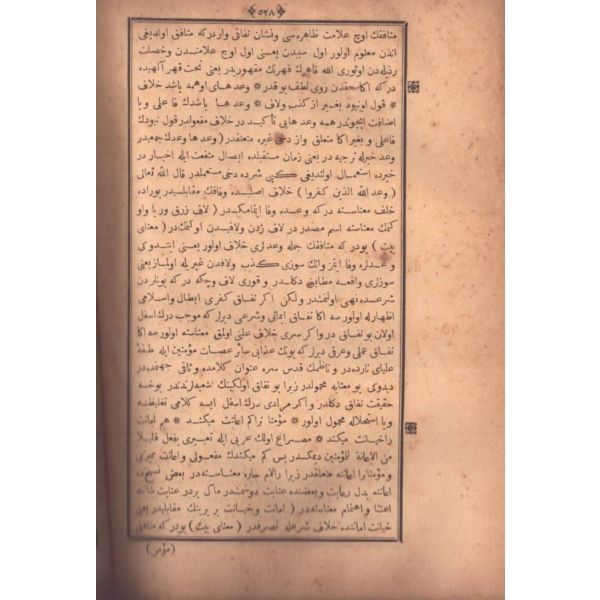 ﴿٥٢٨﴾
منافقك اوچ علامت ظاهره سى ونشان نفاقى واردركه منافق اولديغى
اندن معلوم اولور اول سببدن يعنى اول اوچ علامتدن وخصلت
رذيله دن اوتورى الله قاهرك قهرينك مقهوريدر يعنى تحت قهر آلهيده
دركه اكا حقدن روى لطف يوقدر * وعدهاى اوهمه باشد خلاف
* قول اونبود بغير از كذب ولاف * وعدها باشدك فاعلى ويا
اضافت ايچوندر همه وعدهايى تأكيد در خلاف مفعولدر قول نبودك
فاعلى و بغير اكا متعلق واز دخى غيره متعلقدر ( وعدها وعدك جمعيدر
وعد خيرله ترجيه در يعنى زمان مستقبلده ايصال منفعت ايله اخبار در
خيرده استعمال اولنديغى كبى شرده دخى مستعملدر قال الله تعالى
( وعد الله الذين كفروا ) خلاف اصلده وفاقك مقابليدر بوراده
خلف معناسنه دركه وعده وفا ايتمامكدر ( لاف زرق وريا واو
كتمك معناسنه اسم مصدر در لاف زدن ولافيدن اوكمكدر ( معناى
بيت ) بودركه منافقك جمله وعدلرى خلاف اولور يعنى ايتدوكى
وعدلره وفا ايتمز وانك سوزى كذب ولافدن غيرى له اولماز يعنى
سوزلرى واقعه مطابق دكلدر و قورى لاف وچكه دركه بونلردن
شرعده نهى اولنمشدر ولكن اكر نفاق كفرى ابطال واسلامى
اظهارله اولور سه اكا نفاق ايمانى وشرعى ديرلركه موجب درك اسفل
اولان بو نفاق در واكر سرى خلاف علنى اولمق معناسنه اولور سه اكا
نفاق عملى وعرفى ديرلركه بونك عذابى سائر عصات مؤمنين ايله طبقهٔ
علياى نارده در و ناظمك قدس سره عنوان كلامده وثاقى جهنمده در
ديدوكى بو معنايه محمولدر زيرا بو نفاق اولكينك شعبه لرندندر يوخسه
حقيقت نفاق دكلدر واكر مرادى درك اسفل ايسه كلامى تغليظنه
ويا استحلاله محمول اولور * مؤمنا نراكم اعانت ميكند * هم امانت
را خيانت ميكند * مصراع اولك عربى ايله تعبيرى يفعل قليلا
من الاعانة للمؤمنين ديمكدر پس كم ميكندك مفعولى واعانت مميزى
و مؤمنانرا اعانته متعلقدر زيرا رالام جاره معناسنه در بعض نسخه ده
اعانته بدل رعايت وبعضنده عنايت دوشمشدر مآل بردر عنايت شانه
اعتنا و اهتمام معناسنه در ( امانت وخيانت بر برينك مقابليدر يعنى
خيانت امانتده خلاف شرعله تصرفدر ( معناى بيت ) بودركه منافق
(مؤمن)